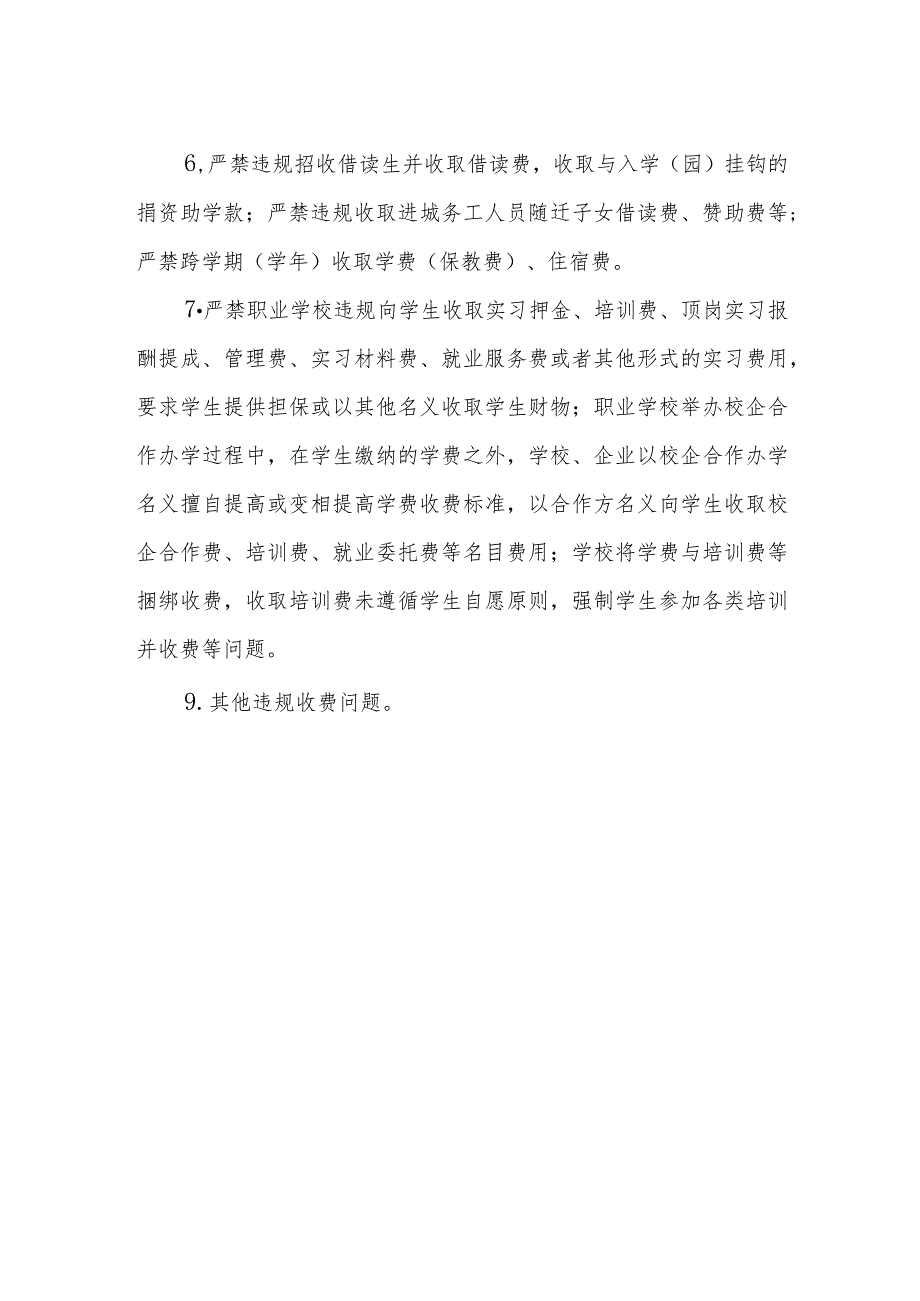 6,严禁违规招收借读生并收取借读费，收取与入学（园）挂钩的
捐资助学款；严禁违规收取进城务工人员随迁子女借读费、赞助费等；
严禁跨学期（学年）收取学费（保教费）、住宿费。
7•严禁职业学校违规向学生收取实习押金、培训费、顶岗实习报
酬提成、管理费、实习材料费、就业服务费或者其他形式的实习费用，
要求学生提供担保或以其他名义收取学生财物；职业学校举办校企合
作办学过程中，在学生缴纳的学费之外，学校、企业以校企合作办学
名义擅自提高或变相提高学费收费标准，以合作方名义向学生收取校
企合作费、培训费、就业委托费等名目费用；学校将学费与培训费等
捆绑收费，收取培训费未遵循学生自愿原则，强制学生参加各类培训
并收费等问题。
9. 其他违规收费问题。